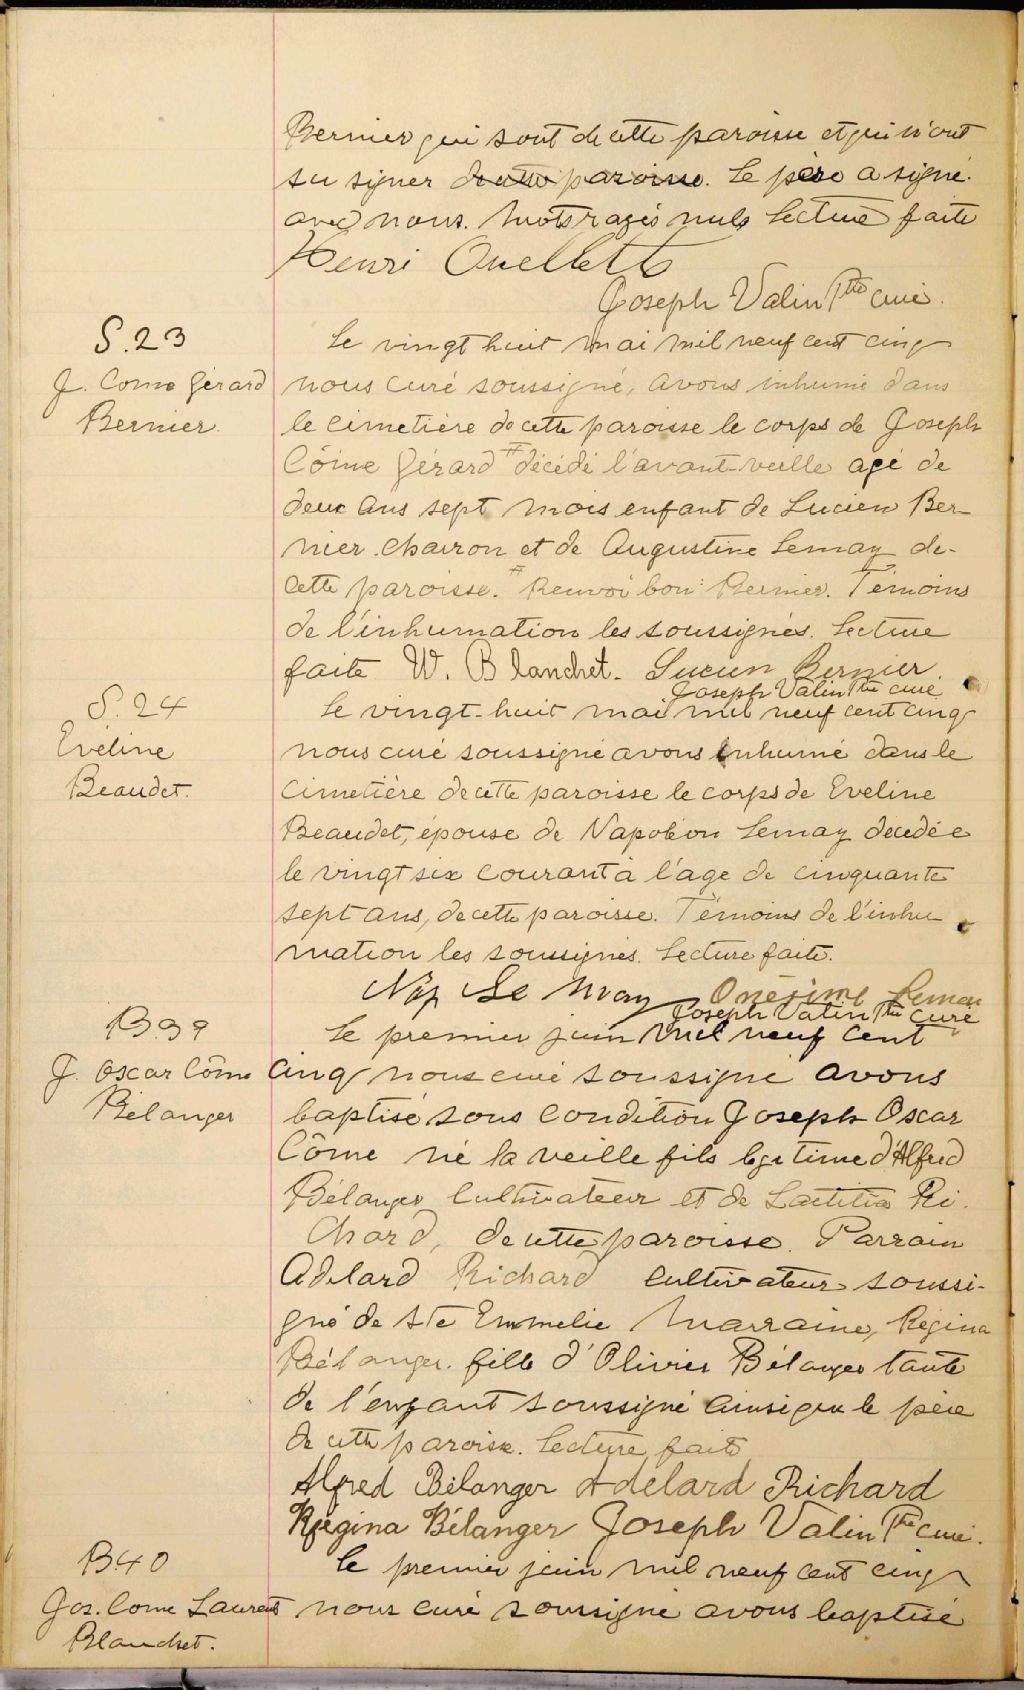 Bernier qui sont de cette paroisse et qui n'ont
su signer de cette paroisse. Le père a signé
avec nous. Mots rayés nuls Lecture faite
Henri Ouellette
Joseph Valin Ptre curé.
S. 23
J. Come Gérard
Bernier.
Le vingt huit mai mil neuf cent cinq
nous curé soussigné, avons inhumé dans
le cimetière de cette paroisse le corps de Joseph
Côme Gérard # décédé l'avant-veille agé de
deux ans sept mois enfant de Lucien Ber-
nier charron et de Augustine Lemay de-
cette paroisse. # Renvoi bon: Bernier. Témoins
de l'inhumation les soussignés. Lecture
faite W. Blanchet. Lucien Bernier
Joseph Valin Ptre curé
S. 24
Eveline
Beaudet.
Le vingt-huit mai mil neuf cent cinq
nous curé soussigné avons inhumé dans le
cimetière de cette paroisse le corps de Eveline
Beaudet, épouse de Napoléon Lemay décédée
le vingt six courant à l'age de cinquante
sept ans, de cette paroisse. Témoins de l'inhu-
mation les soussignés. Lecture faite.
Nap Le May Onésime Lemay
Joseph Valin Ptre curé
B. 39
J. Oscar Côme
Bélanger
Le premier juin mil neuf cent
cinq nous curé soussigné avons
baptisé sous condition Joseph Oscar
Côme né la veille fils legitime d'Alfred
Bélanger cultivateur et de Laetitia Ri
chard, de cette paroisse. Parrain
Adelard Richard cultivateur soussi-
gné de Ste Emmelie Marraine, Régina
Bélanger. fille d'Olivier Bélanger tante
de l'enfant soussigné ainsi que le père
de cette paroisse. Lecture faite
Alfred Bélanger Adelard Richard
Régina Bélanger Joseph Valin Ptre curé.
B40
Jos. Come Laurent
Blanchet.
Le premier juin mil neuf cent cinq
nous curé soussigné avons baptisé